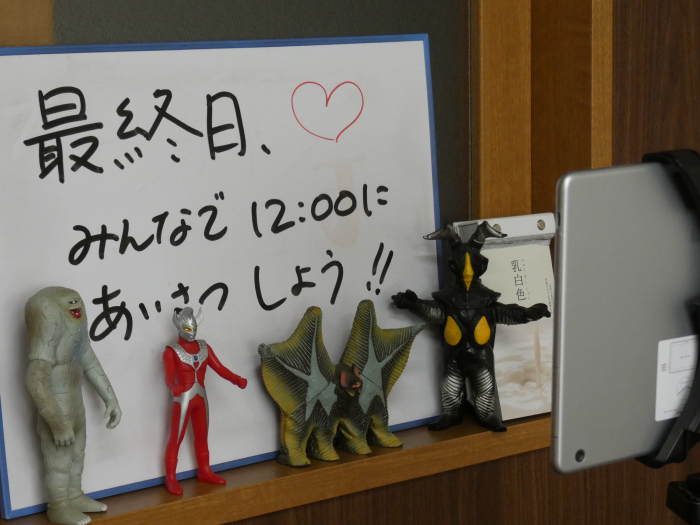 最終日、♡
みんなで 12:00に
あいさつ しよう!!
乳白色